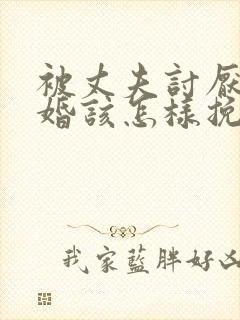 被丈夫討厭
婚該怎樣挽
我家藍胖好凶